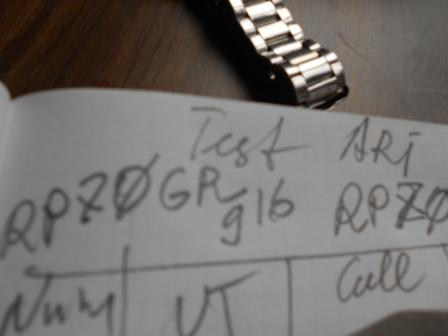 Test ARi
RPZØGR g16 RPZØ
Num UT Call